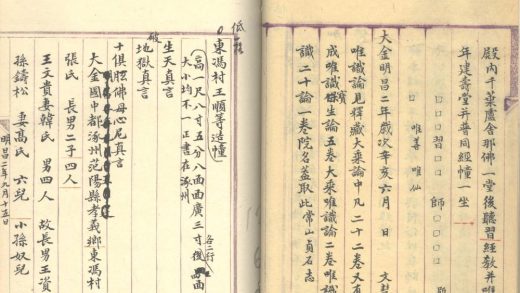 殿内千葉盧舍那佛一堂後聽習經教并唯
年建壽堂并普同經幢一坐
□□□□習 師□□□□
□ 唯善 唯仙
大金明昌二年歲次辛亥六月日 文
唯識論見釋藏大乘論中凡二十二卷又有
成唯識寶生論五卷大乘唯識論二卷唯識
識二十論一卷院名蓋取此常山貞石志
低一格
東馮村王順等造幢
高一尺八寸五分八面面廣三寸後四面各二行
大小均不一正書在涿州
生天真言
破地獄真言
十俱胝佛母心尼真言
大金國中都涿州范陽縣孝義鄉東馮村
張氏 長男二子四人
王文貴妻韓氏 男四人 故長男王資
孫鑄松 妻高氏 六兒 小孫奴兒
明昌二年九月十五日